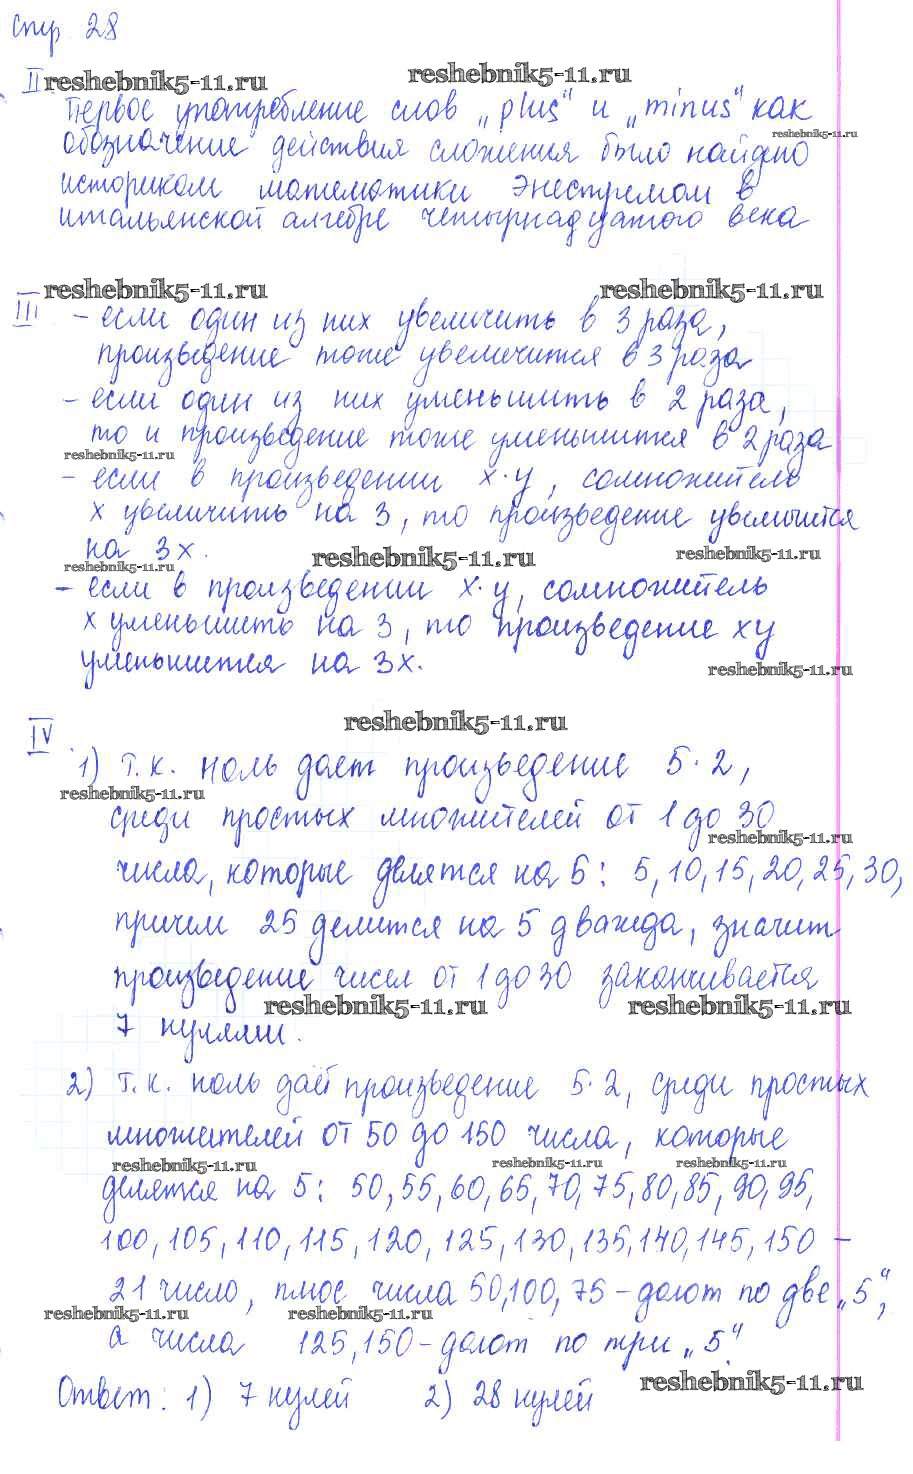 стр. 28
II reshebnik5-11.ru reshebnik5-11.ru
Первое употребление слов „plus“ и „minus“ как
reshebnik5-11.ru
обозначение действия сложения было найдено
историком математики Энестремом в
итальянской алгебре четырнадцатого века
III reshebnik5-11.ru reshebnik5-11.ru
- если один из них увеличить в 3 раза,
произведение тоже увеличится в 3 раза
- если один из них уменьшить в 2 раза,
то и произведение тоже уменьшится в 2 раза
reshebnik5-11.ru
- если в произведении x·y, сомножитель
x увеличить на 3, то произведение увеличится
на 3x. reshebnik5-11.ru reshebnik5-11.ru
reshebnik5-11.ru
- если в произведении x·y, сомножитель
x уменьшить на 3, то произведение xy
уменьшится на 3x.
reshebnik5-11.ru
IV reshebnik5-11.ru
1) т.к. ноль дает произведение 5·2,
reshebnik5-11.ru
среди простых множителей от 1 до 30
reshebnik5-11.ru
числа, которые делятся на 5: 5, 10, 15, 20, 25, 30,
причем 25 делится на 5 дважда, значит
произведение чисел от 1 до 30 заканчивается
reshebnik5-11.ru reshebnik5-11.ru
7 нулями.
2) т.к. ноль даёт произведение 5·2, среди простых
множителей от 50 до 150 числа, которые
reshebnik5-11.ru reshebnik5-11.ru reshebnik5-11.ru
делятся на 5: 50, 55, 60, 65, 70, 75, 80, 85, 90, 95,
100, 105, 110, 115, 120, 125, 130, 135, 140, 145, 150 -
21 число, плюс числа 50, 100, 75 - дают по две „5“,
reshebnik5-11.ru reshebnik5-11.ru
а числа 125, 150 - дают по три „5“.
reshebnik5-11.ru
Ответ: 1) 7 нулей 2) 28 нулей